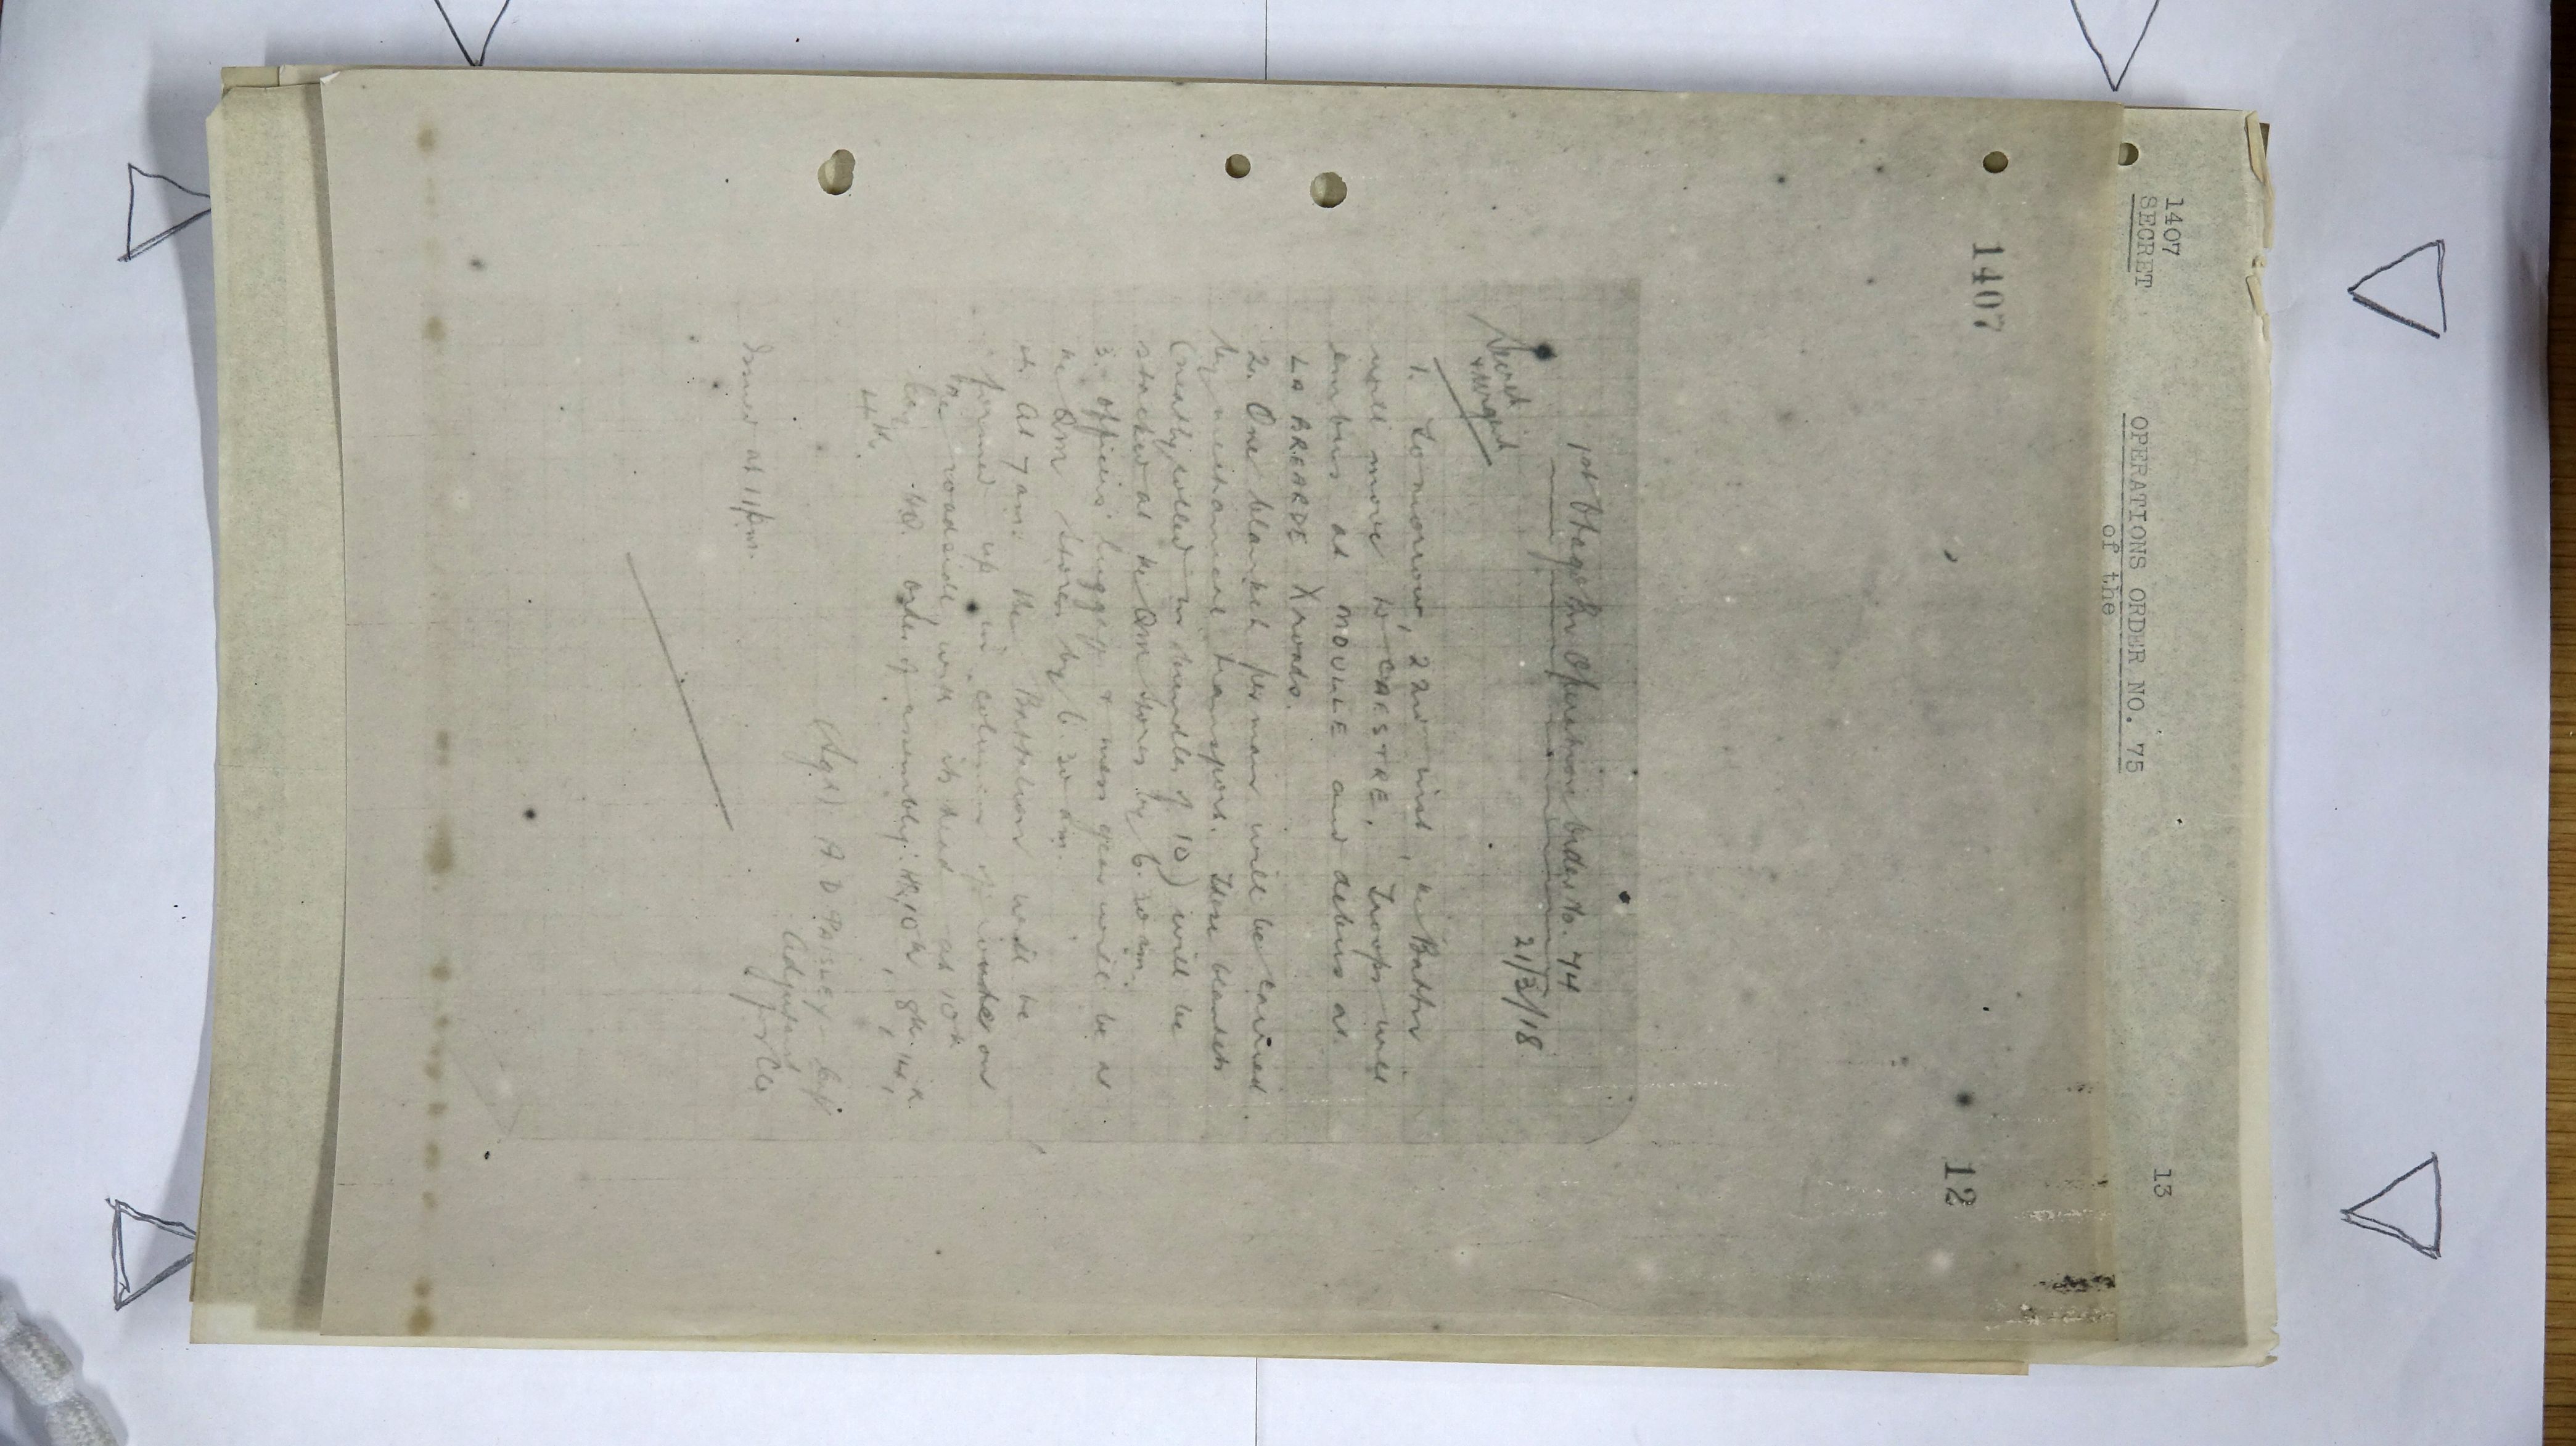 1407
SECRET
13
OPERATIONS ORDER NO. 75
of the
1407
12
1st Otago Bn Operation Order No. 74
21/3/18
Secret
& Urgent
1. Tomorrow, 22nd inst, the Battn
will move to CAESTRE. Troops will
embus at MOULLE and debus at
LA BREARDE Xroads.
2. One blanket per man will be carried
by mechanical transport. These blankets
(neatly rolled in bundles of 10) will be
stacked at the QM Stores by 6.30 am.
3. Officers' luggage & mess gear will be at
the QM Stores by 6.30 am.
4. At 7 am the Battalion will be
formed up in column of route on
the roadside with its head at 10th
HQ. Order of assembly: HQ, 10th, 8th, 14th,
4th.
(Sgd) A D
Adjutant
for CO
Issued at 11 pm.